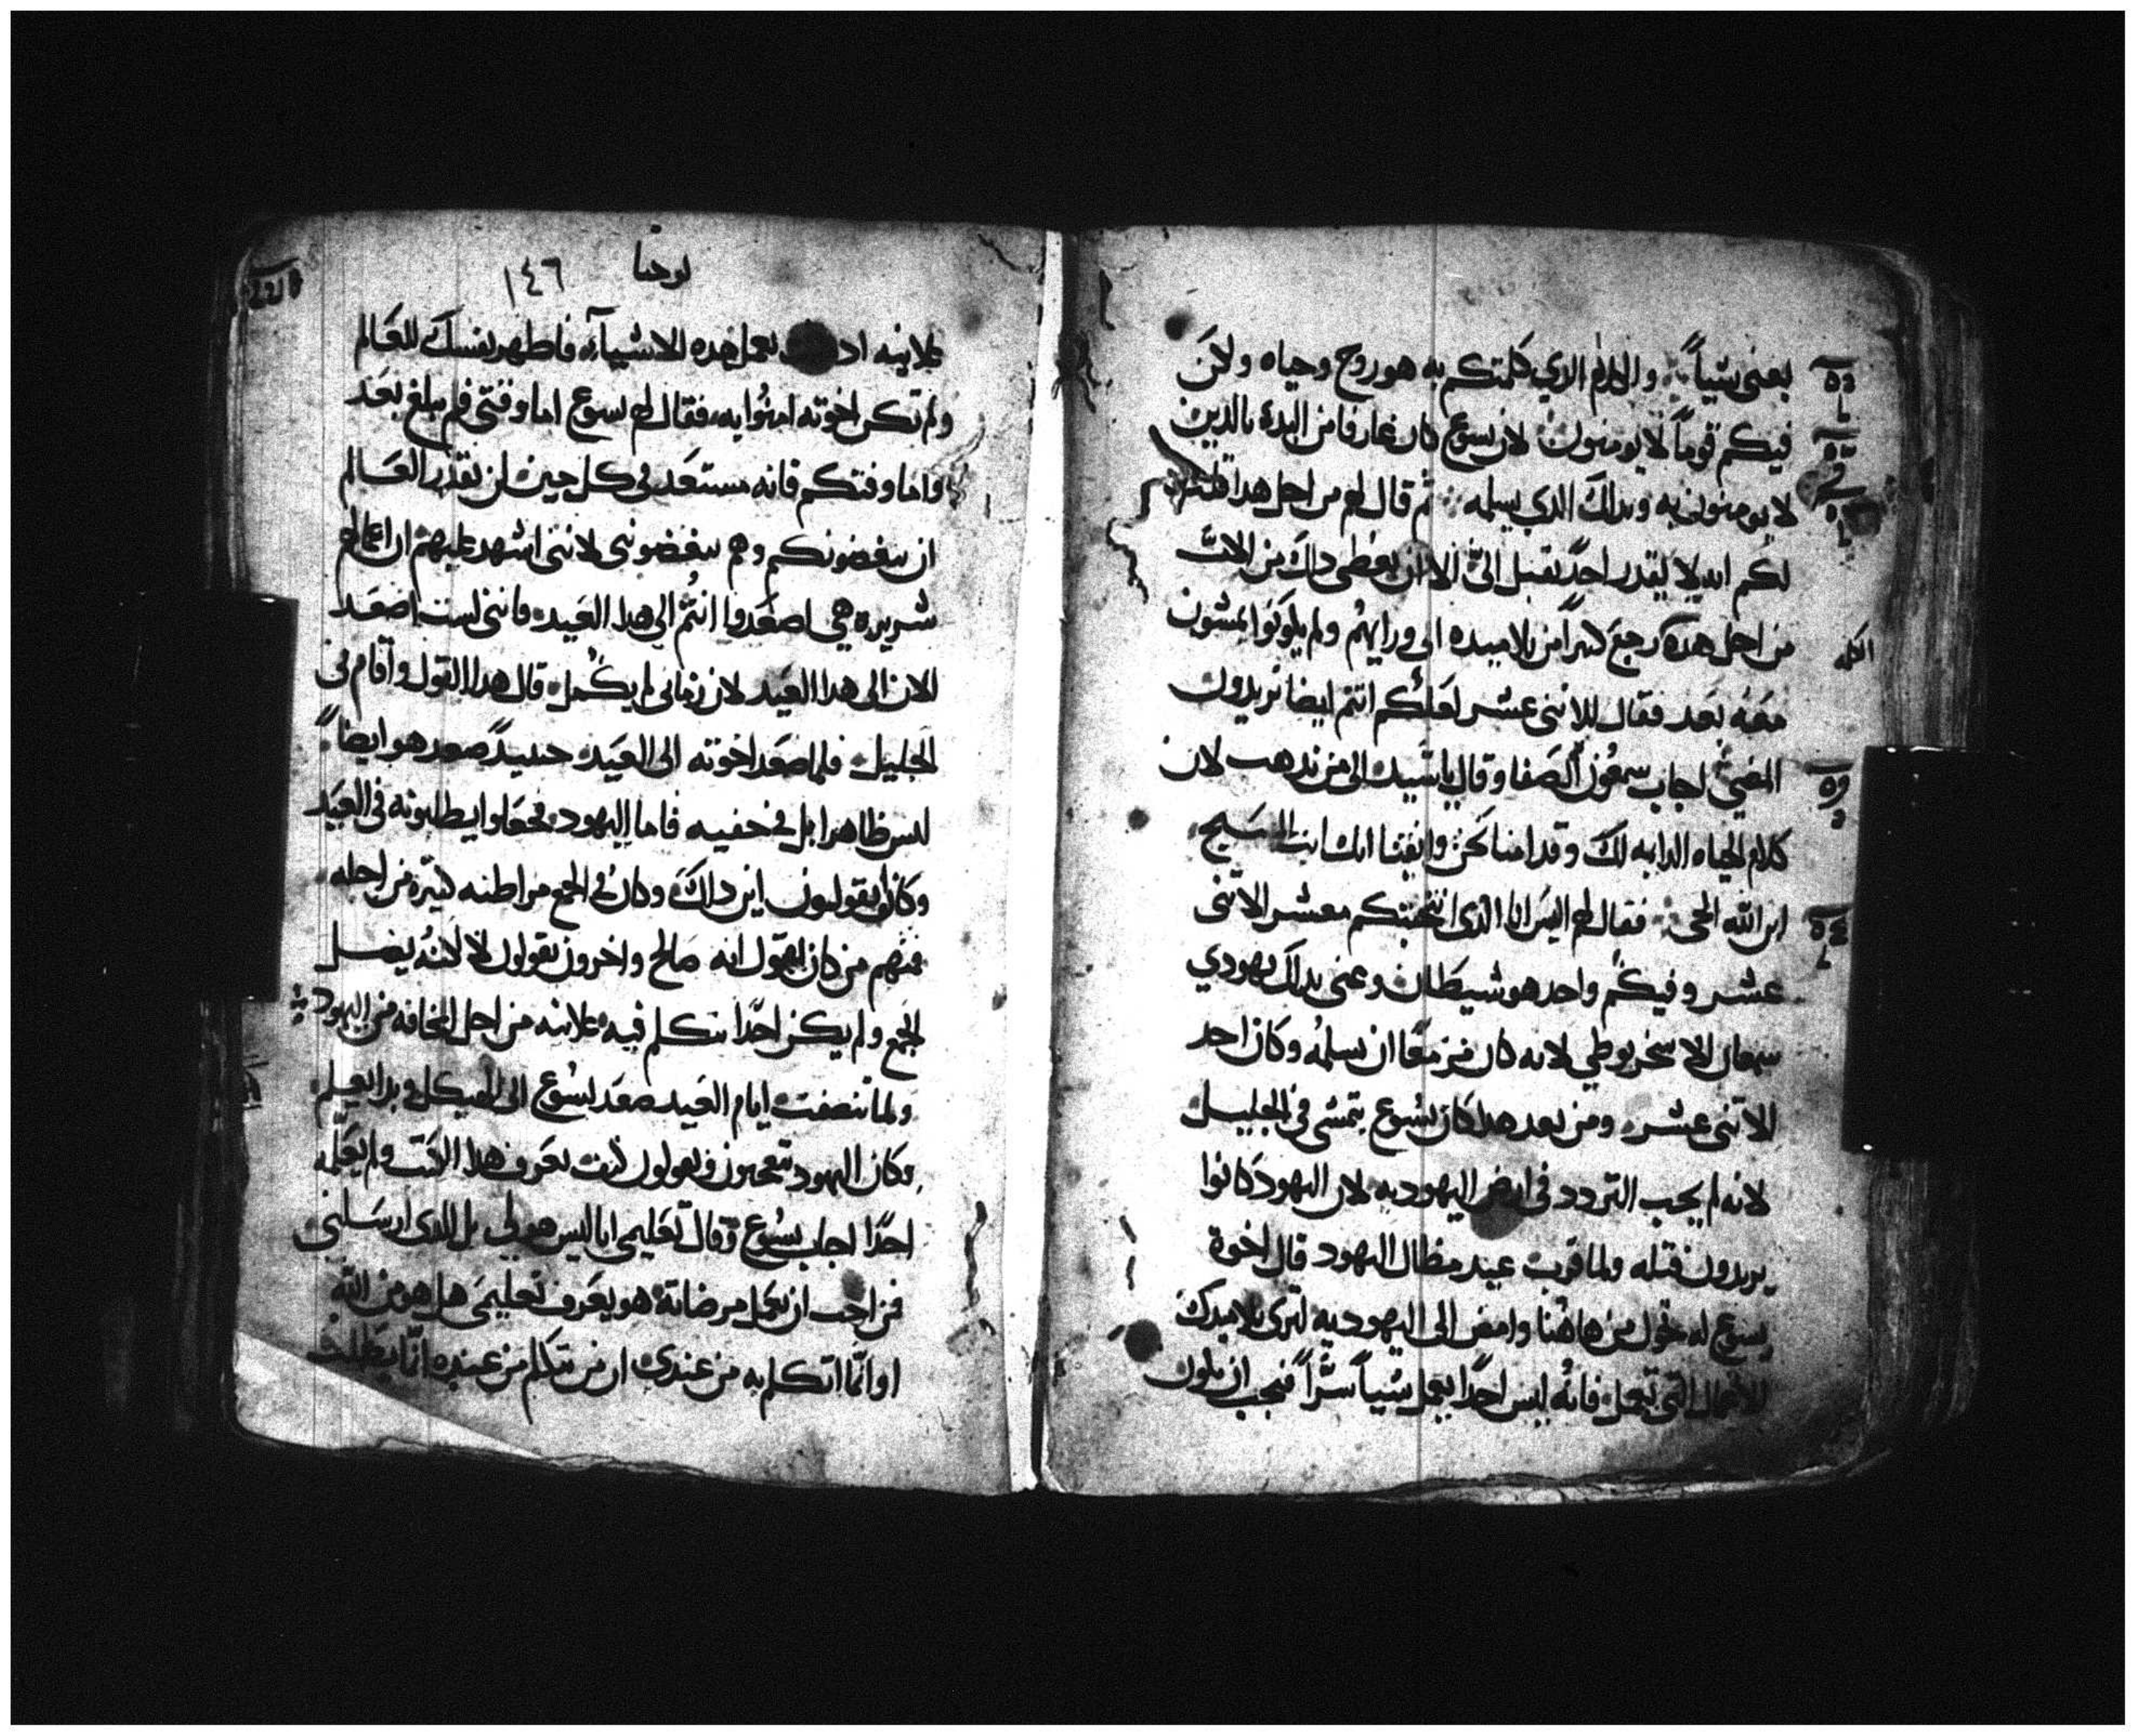 يعني شياً والكلام الدي كلمتكم به هو روح وحياه ولاكن
فيكم قوماً لا يومنون لان يسوع كان عارفا من البدء بالدين
لا يومنون به وبداك الدي يسلمه ثم قال لهم من اجل هدا قلت
لكم انه لا يقدر احدٌ يقبل اليَّ الا ان يعطى داك من الاب
من اجل هده رجع كثيراً من تلاميده الى ورايهم ولم يكونوا يمشون
الكلمه
معه بعد فقال للاثنى عشر لعلكم انتم ايضا تريدون
المضي اجاب سمعون الصفا وقال ياسيد الى من ندهب لان
كلام الحياه الدايمه لك وقد امنا نحن وايقنا انك انت المسيح
ابن الله الحي فقال لهم اليس انا الدى انتخبتكم معشر الاثنى
عشر وفيكم واحد هو شيطان وعنى بداك يهودي
سمعان الاسخريوطي لانه كان مزمعًا ان يسلمه وكان احد
الاثنى عشر ومن بعد هدا كان يسوع يتمشى في الجليل
لانه لم يحب التردد في ارض اليهوديه لان اليهود كانوا
يريدون قتله ولما قربت عيد مظال اليهود قال اخوة
يسوع له تحول من هاهنا وامض الى اليهوديه لترى تلاميدك
الاعمال التي تعمل فانه ليس احدًا يعمل شياً سراً فيحب ان يكون
يوحنا
١٤٦
علانيه تعمل هده الاشياء فاظهر نفسك للعالم
ولم تكن اخوته امنوا به فقال لهم يسوع اما وقتى فلم يبلغ بعد
واما وقتكم فانه مستعد في كل حين لن يقدر العالم
ان يبغضونكم وهم يبغضونى لاننى اشهد عليهم ان اعمالهم
شريره هي اصعدوا انتم الى هدا العيد فاننى لست اصعد
الان الى هدا العيد لان زمانى لم يكمل قال هدا القول واقام في
الجليل فلما صعد اخوته الى العيد حينيدً صعد هو ايضاً
ليس ظاهرا بل في خفيه فاما اليهود فجعلوا يطلبونه في العيد
وكانوا يقولون اين داك وكان في الجمع مراطنه كثيره من اجله
فمنهم من كان يقول انه صالح واخرون يقولون لا لاكنه يضل
الجمع ولم يكن احدًا يتكلم فيه علانيه من اجل المخافه من اليهود
ولما تنصفت ايام العيد صعد يسوع الى الهيكل وبدا يعلم
وكان اليهود يتعجبون ويقولون كيف يعرف هدا الكتب ولم يعلمه
احدًا اجاب يسوع وقال تعليمي انا ليس هو لي بل للدى ارسلنى
فمن احب ان يعمل مرضاته هو يعرف تعليمى هل هو من الله
او انما اتكلم به من عندى ان من يتكلم من عنده انما يطلب